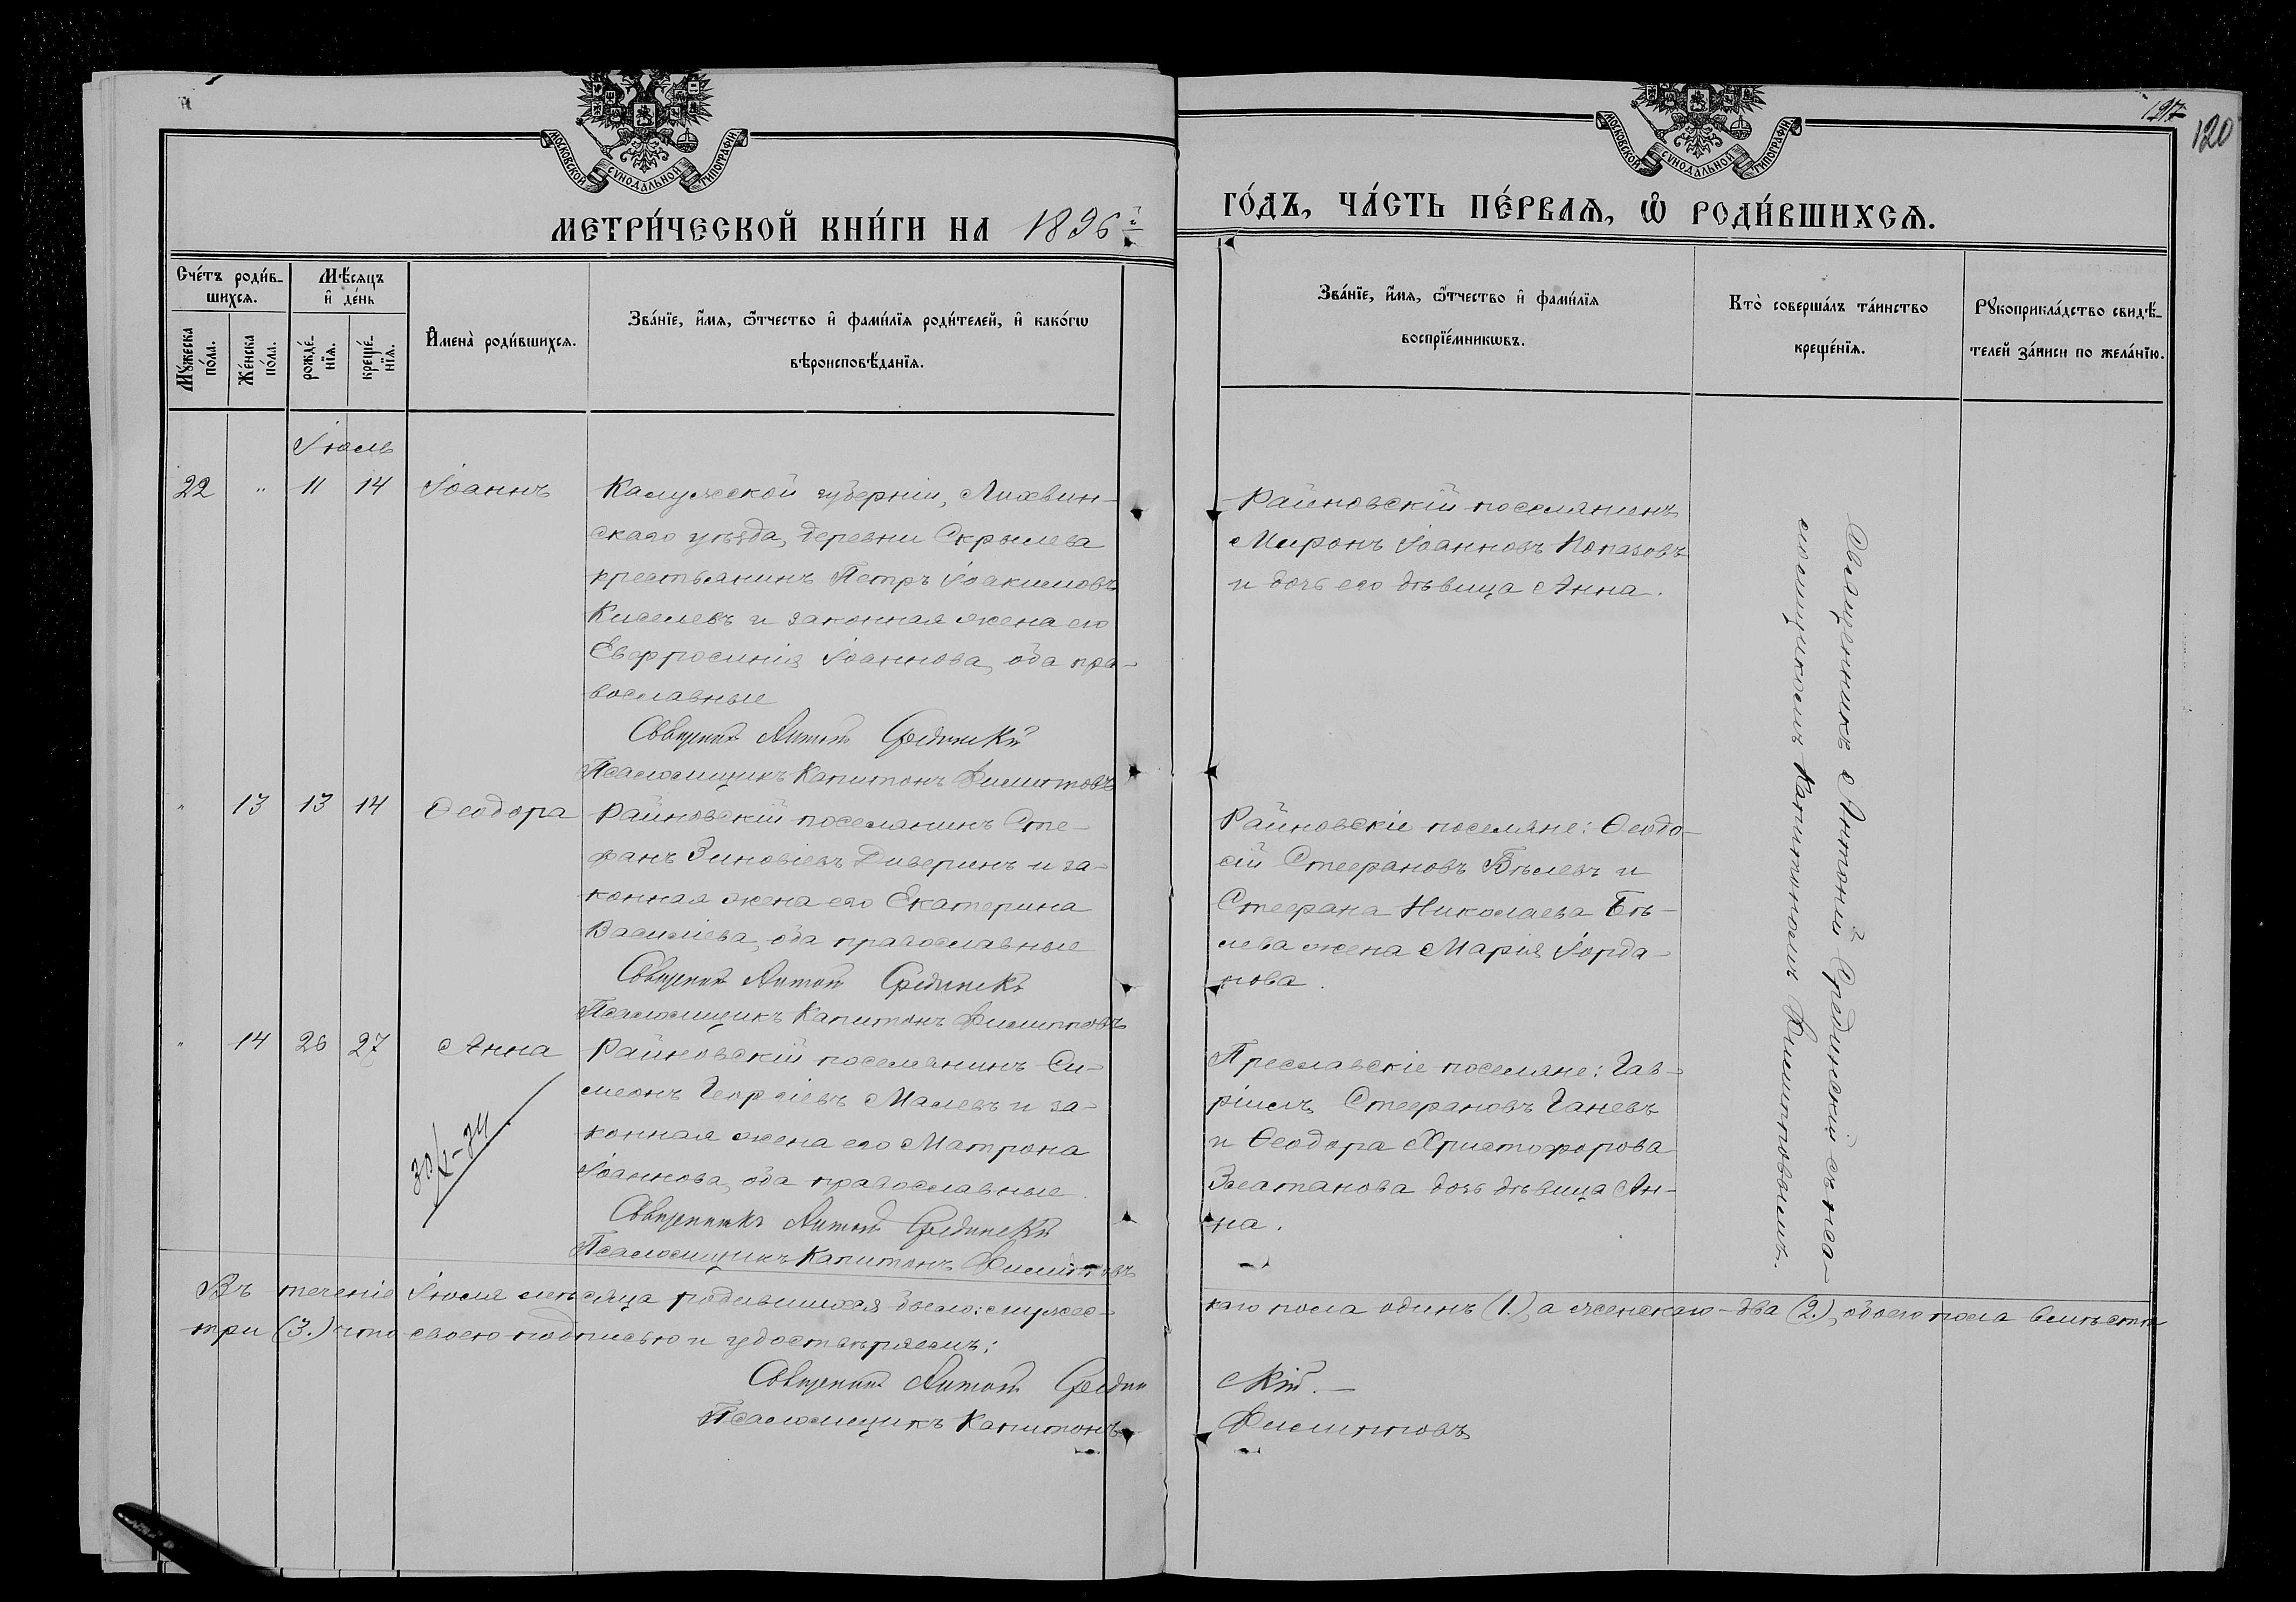 МОСКОВСКОЙ СѴНОДАЛЬНОЙ ТИПОГРАФІИ
МЕТРИ́ЧЕСКОЙ КНИ́ГИ НА 1896й
Сче́тъ роди́в-
шихся.
Мѣ́сяцъ
и҆ де́нь
Мꙋ́жеска
по́ла.
Же́нска
по́ла.
рожде́-
нїя.
креще́-
нїя.
И҆мена̀ роди́вшихся.
Зва́нїе, и҆́мя, ѻ҆́тчество и҆ фами́лїя роди́телей, и҆ како́гѡ
вѣроисповѣ́данїя.
Іюль
22 " 11 14 Іоаннъ
Калужской губерніи, Лихвин-
скаго уѣзда, деревни Скрылева
крестьянинъ Петръ Іоакимовъ
Киселевъ и законная жена его
Евфросинія Іоаннова, оба пра-
вославные
Священникъ Антоній Срединскій
Псаломщикъ Капитонъ Филипповъ
" 13 13 14 Ѳеодора
Райновскій поселянинъ Сте-
фанъ Зиновіевъ Диверинъ и за-
конная жена его Екатерина
Василіева, оба православные
Священникъ Антоній Срединскій
Псаломщикъ Капитонъ Филипповъ
" 14 26 27 Анна
Райновскій поселянинъ Си-
меонъ Георгіевъ Малевъ и за-
конная жена его Матрона
Іоаннова, оба православные.
Священникъ Антоній Срединскій
Псаломщикъ Капитонъ Филипповъ
Въ теченіе Іюля мѣсяца родившихся было: мужес-
три (3.) что своею подписью и удостовѣряемъ:
Священникъ Антоній Средин
Псаломщикъ Капитонъ
127
120
МОСКОВСКОЙ СѴНОДАЛЬНОЙ ТИПОГРАФІИ
ГО́ДЪ, ЧА́СТЬ ПЕ́РВАЯ, Ѽ РОДИ́ВШИХСЯ.
Зва́нїе, и҆́мя, ѻ҆́тчество и҆ фами́лїя
воспрїе́мникѡвъ.
Кто̀ соверша́лъ та́инство
креще́нїя.
Рꙋкоприкла́дство свидѣ́-
телей за́писи по жела́нїю.
Райновскій поселянинъ
Миронъ Іоанновъ Копазовъ
и дочь его дѣвица Анна.
Райновскіе поселяне: Ѳеодо-
сій Стефановъ Бѣлевъ и
Стефана Николаева Бѣ-
лева жена Марія Іорда-
нова.
Преславскіе поселяне: Гав-
ріилъ Стефановъ Ганевъ
и Ѳеодора Христофорова
Златанова дочь дѣвица Ан-
на.
Священникъ Антоній Срединскій съ пса-
ломщикомъ Капитономъ Филипповымъ.
каго пола одинъ (1.), а женскаго-два (2.), обоего пола вмѣстѣ
скій.
Филипповъ